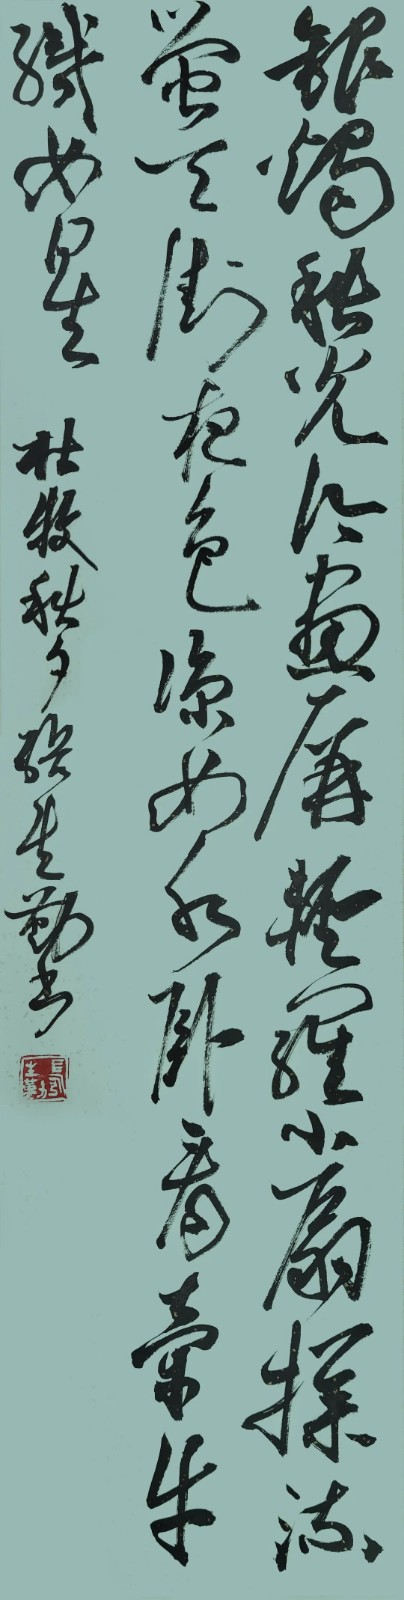 銀燭秋光冷畫屏輕羅小扇撲流
螢天街夜色凉如水卧看牽牛
織女星 杜牧秋夕 張生勤書